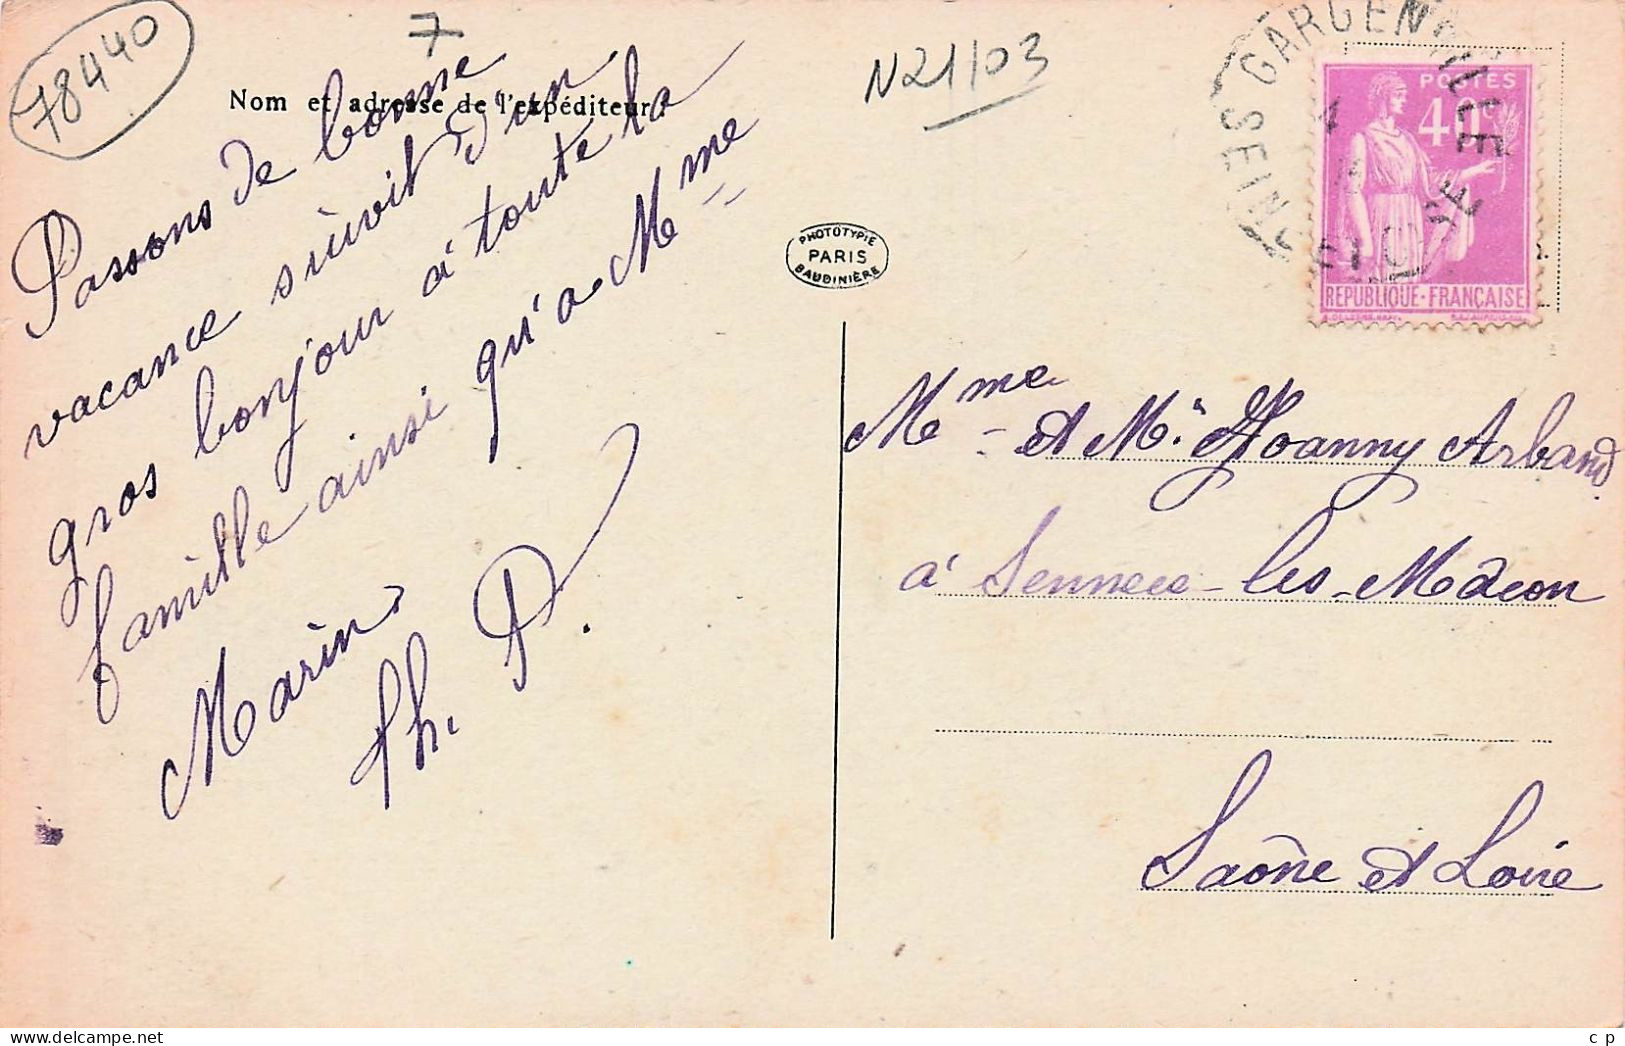 78440
7
N21103
Nom et adresse de l'expéditeur :
Passons de bonne
vacance suivit d'un
gros bonjour à toute la
famille ainsi qu'a Mme
Marin
PHOTOTYPIE
PARIS
BAUDINIÈRE
GARGENVILLE
SEINE-ET-OISE
POSTES
40c
REPUBLIQUE-FRANÇAISE
Mme et Mr Joanny Arband
à Sennece-les-Macon
Saône et Loire
c p